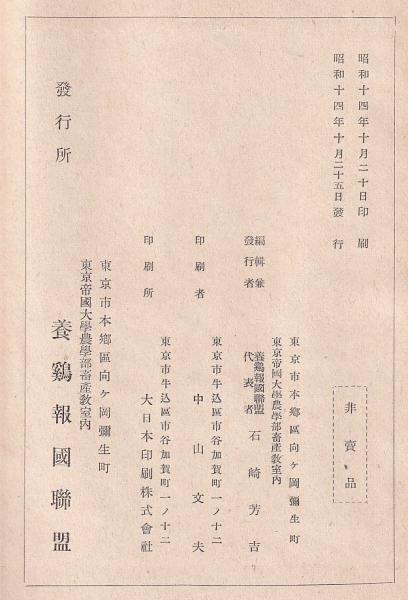 昭和十四年十月二十日印刷
昭和十四年十月二十五日發行
非賣品
東京市本鄕區向ケ岡彌生町
東京帝國大學農學部畜產敎室內
編輯兼
發行者
養鷄報國聯盟
代表者
石崎芳吉
東京市牛込區市谷加賀町一ノ十二
印刷者
中山文夫
東京市牛込區市谷加賀町一ノ十二
印刷所
大日本印刷株式會社
東京市本鄕區向ケ岡彌生町
東京帝國大學農學部畜產敎室內
發行所
養鷄報國聯盟